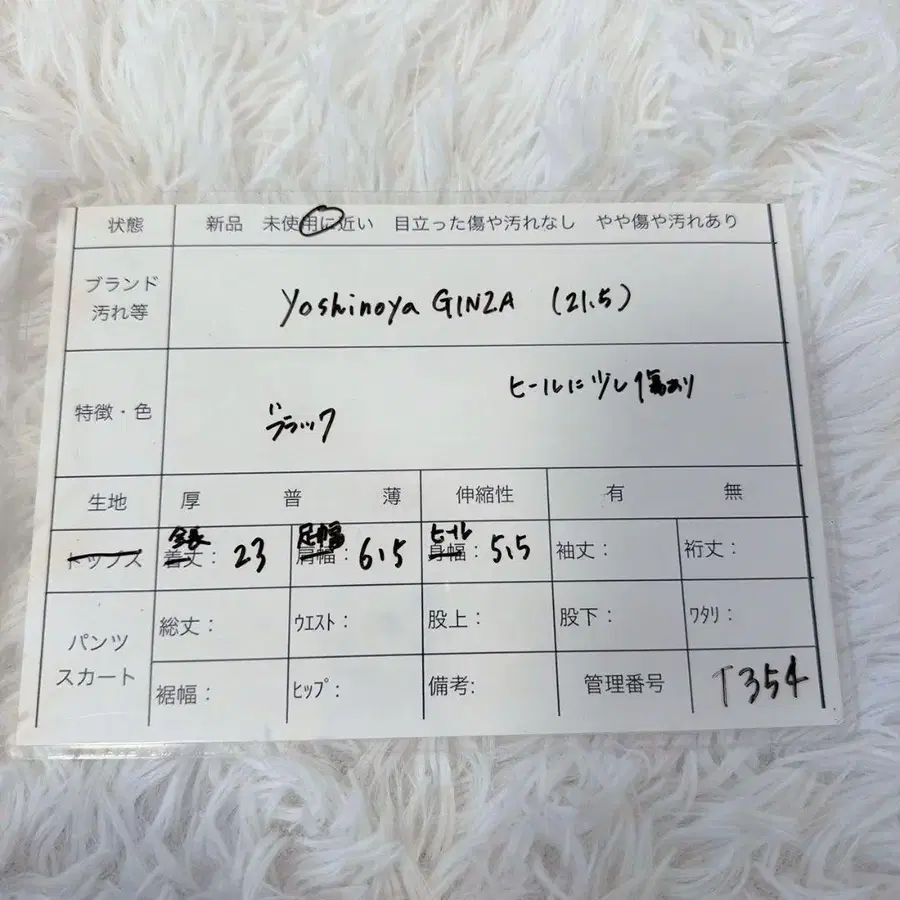 状態 新品 未使用に近い 目立った傷や汚れなし やや傷や汚れあり
ブランド
汚れ等
Yoshinoya GINZA (21.5)
特徴・色
ヒールに少し傷あり
ブラック
生地 厚 普 薄 伸縮性 有 無
全長 足幅 ヒール
トップス 着丈: 23 肩幅: 6.5 身幅: 5.5 袖丈: 裄丈:
パンツ
スカート
総丈: ウエスト: 股上: 股下: ワタリ:
裾幅: ヒップ: 備考: 管理番号 T354